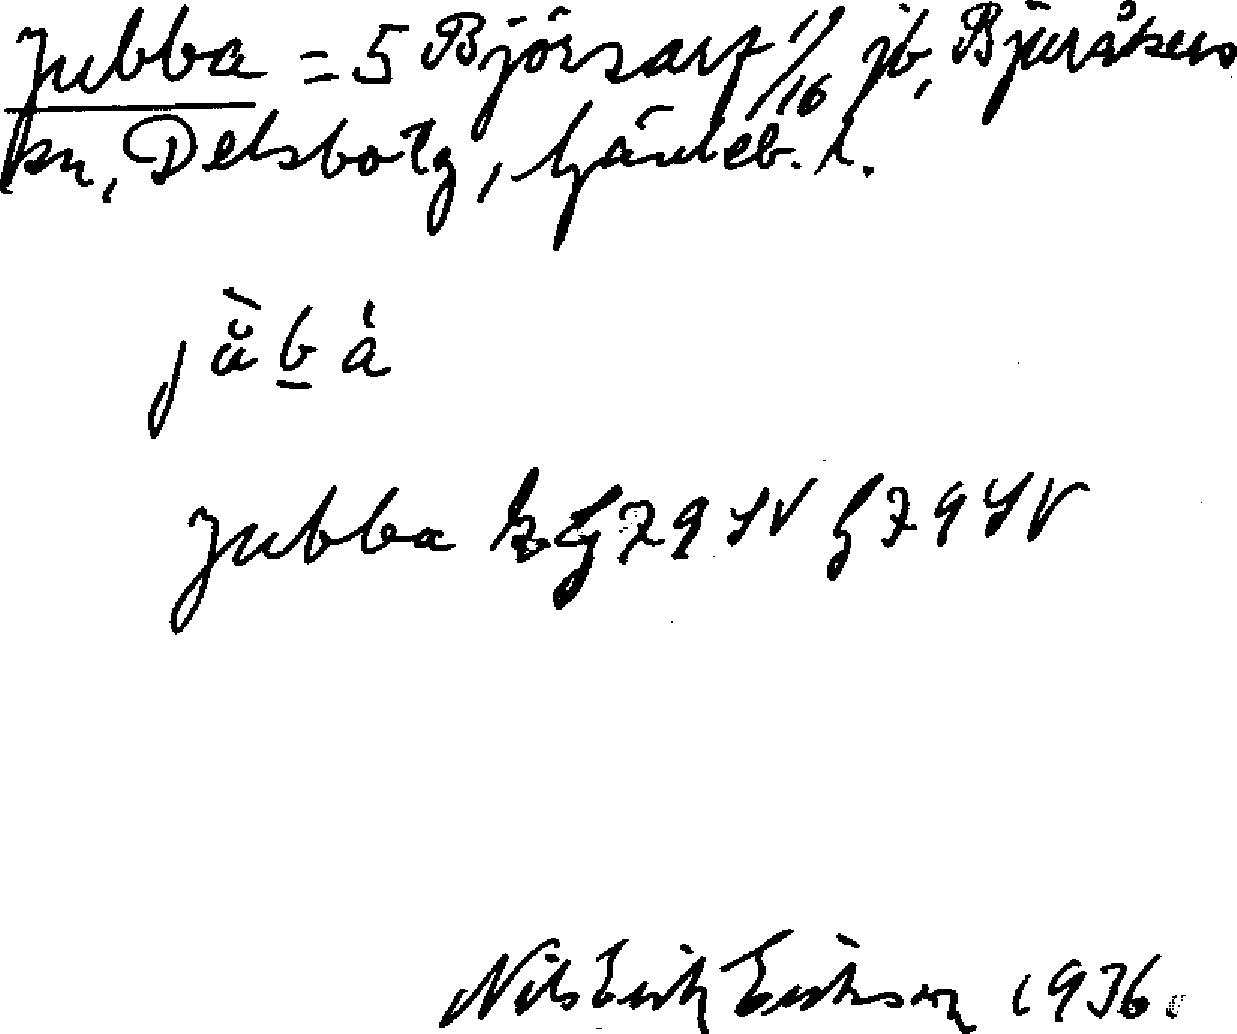 Jubba = 5 Björsarf 1/16 jb, Bjuråkers
sn, Delsbo tg, Gävleb. l.
Jubba G 7 9 SV G 7 9 SV
Nils Erik Erikson 1936.